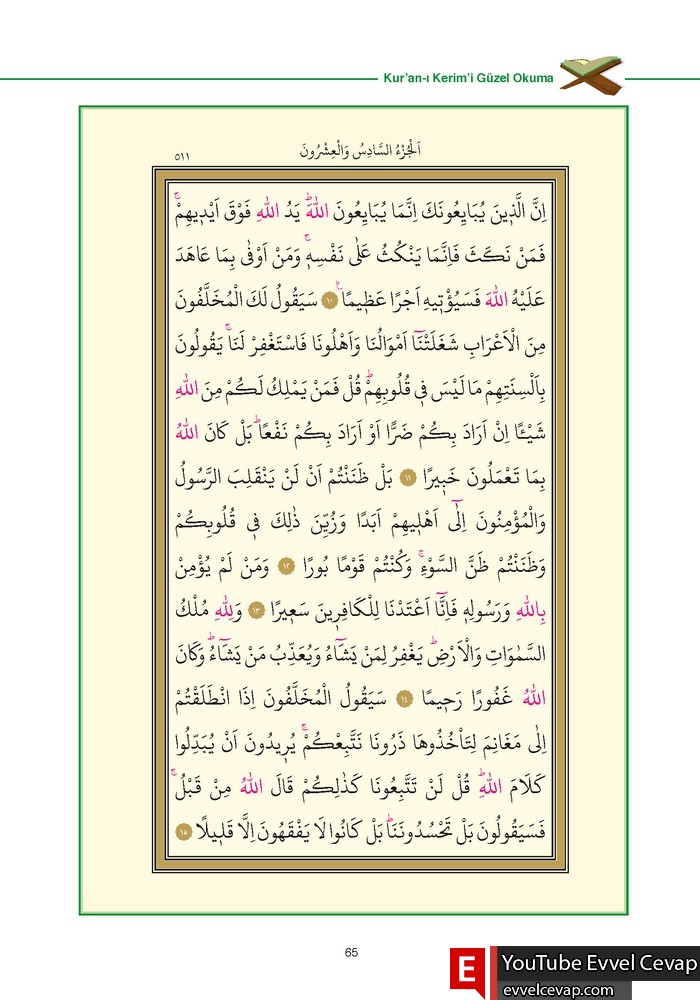 Kur’an-ı Kerim’i Güzel Okuma
اَلْجُزْءُ السَّادِسُ وَالْعِشْرُونَ
٥١١
اِنَّ الَّذ۪ينَ يُبَايِعُونَكَ اِنَّمَا يُبَايِعُونَ اللّٰهَۜ يَدُ اللّٰهِ فَوْقَ اَيْد۪يهِمْۚ
فَمَنْ نَكَثَ فَاِنَّمَا يَنْكُثُ عَلٰى نَفْسِه۪ۚ وَمَنْ اَوْفٰى بِمَا عَاهَدَ
عَلَيْهُ اللّٰهَ فَسَيُؤْت۪يهِ اَجْرًا عَظ۪يمًاۚ ١٠ سَيَقُولُ لَكَ الْمُخَلَّفُونَ
مِنَ الْاَعْرَابِ شَغَلَتْنَٓا اَمْوَالُنَا وَاَهْلُونَا فَاسْتَغْفِرْ لَنَاۚ يَقُولُونَ
بِاَلْسِنَتِهِمْ مَا لَيْسَ ف۪ي قُلُوبِهِمْۜ قُلْ فَمَنْ يَمْلِكُ لَكُمْ مِنَ اللّٰهِ
شَيْـًٔا اِنْ اَرَادَ بِكُمْ ضَرًّا اَوْ اَرَادَ بِكُمْ نَفْعًاۜ بَلْ كَانَ اللّٰهُ
بِمَا تَعْمَلُونَ خَب۪يرًا ١١ بَلْ ظَنَنْتُمْ اَنْ لَنْ يَنْقَلِبَ الرَّسُولُ
وَالْمُؤْمِنُونَ اِلٰٓى اَهْل۪يهِمْ اَبَدًا وَزُيِّنَ ذٰلِكَ ف۪ي قُلُوبِكُمْ
وَظَنَنْتُمْ ظَنَّ السَّوْءِۚ وَكُنْتُمْ قَوْمًا بُورًا ١٢ وَمَنْ لَمْ يُؤْمِنْ
بِاللّٰهِ وَرَسُولِه۪ فَاِنَّٓا اَعْتَدْنَا لِلْكَافِر۪ينَ سَع۪يرًا ١٣ وَلِلّٰهِ مُلْكُ
السَّمٰوَاتِ وَالْاَرْضِۜ يَغْفِرُ لِمَنْ يَشَٓاءُ وَيُعَذِّبُ مَنْ يَشَٓاءُۜ وَكَانَ
اللّٰهُ غَفُورًا رَح۪يمًا ١٤ سَيَقُولُ الْمُخَلَّفُونَ اِذَا انْطَلَقْتُمْ
اِلٰى مَغَانِمَ لِتَأْخُذُوهَا ذَرُونَا نَتَّبِعْكُمْۚ يُر۪يدُونَ اَنْ يُبَدِّلُوا
كَلَامَ اللّٰهِۜ قُلْ لَنْ تَتَّبِعُونَا كَذٰلِكُمْ قَالَ اللّٰهُ مِنْ قَبْلُۚ
فَسَيَقُولُونَ بَلْ تَحْسُدُونَنَاۜ بَلْ كَانُوا لَا يَفْقَهُونَ اِلَّا قَل۪يلًا ١٥
65
E YouTube Evvel Cevap
evvelcevap.com